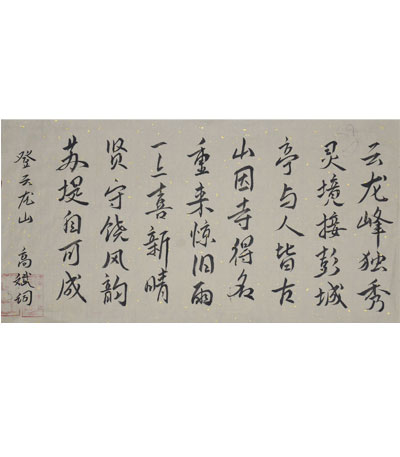 云龙峰独秀
灵境接彭城
亭与人皆古
山因寺得名
重来惊旧雨
一上喜新晴
贤守饶风韵
苏堤自可成
登云龙山 高斌